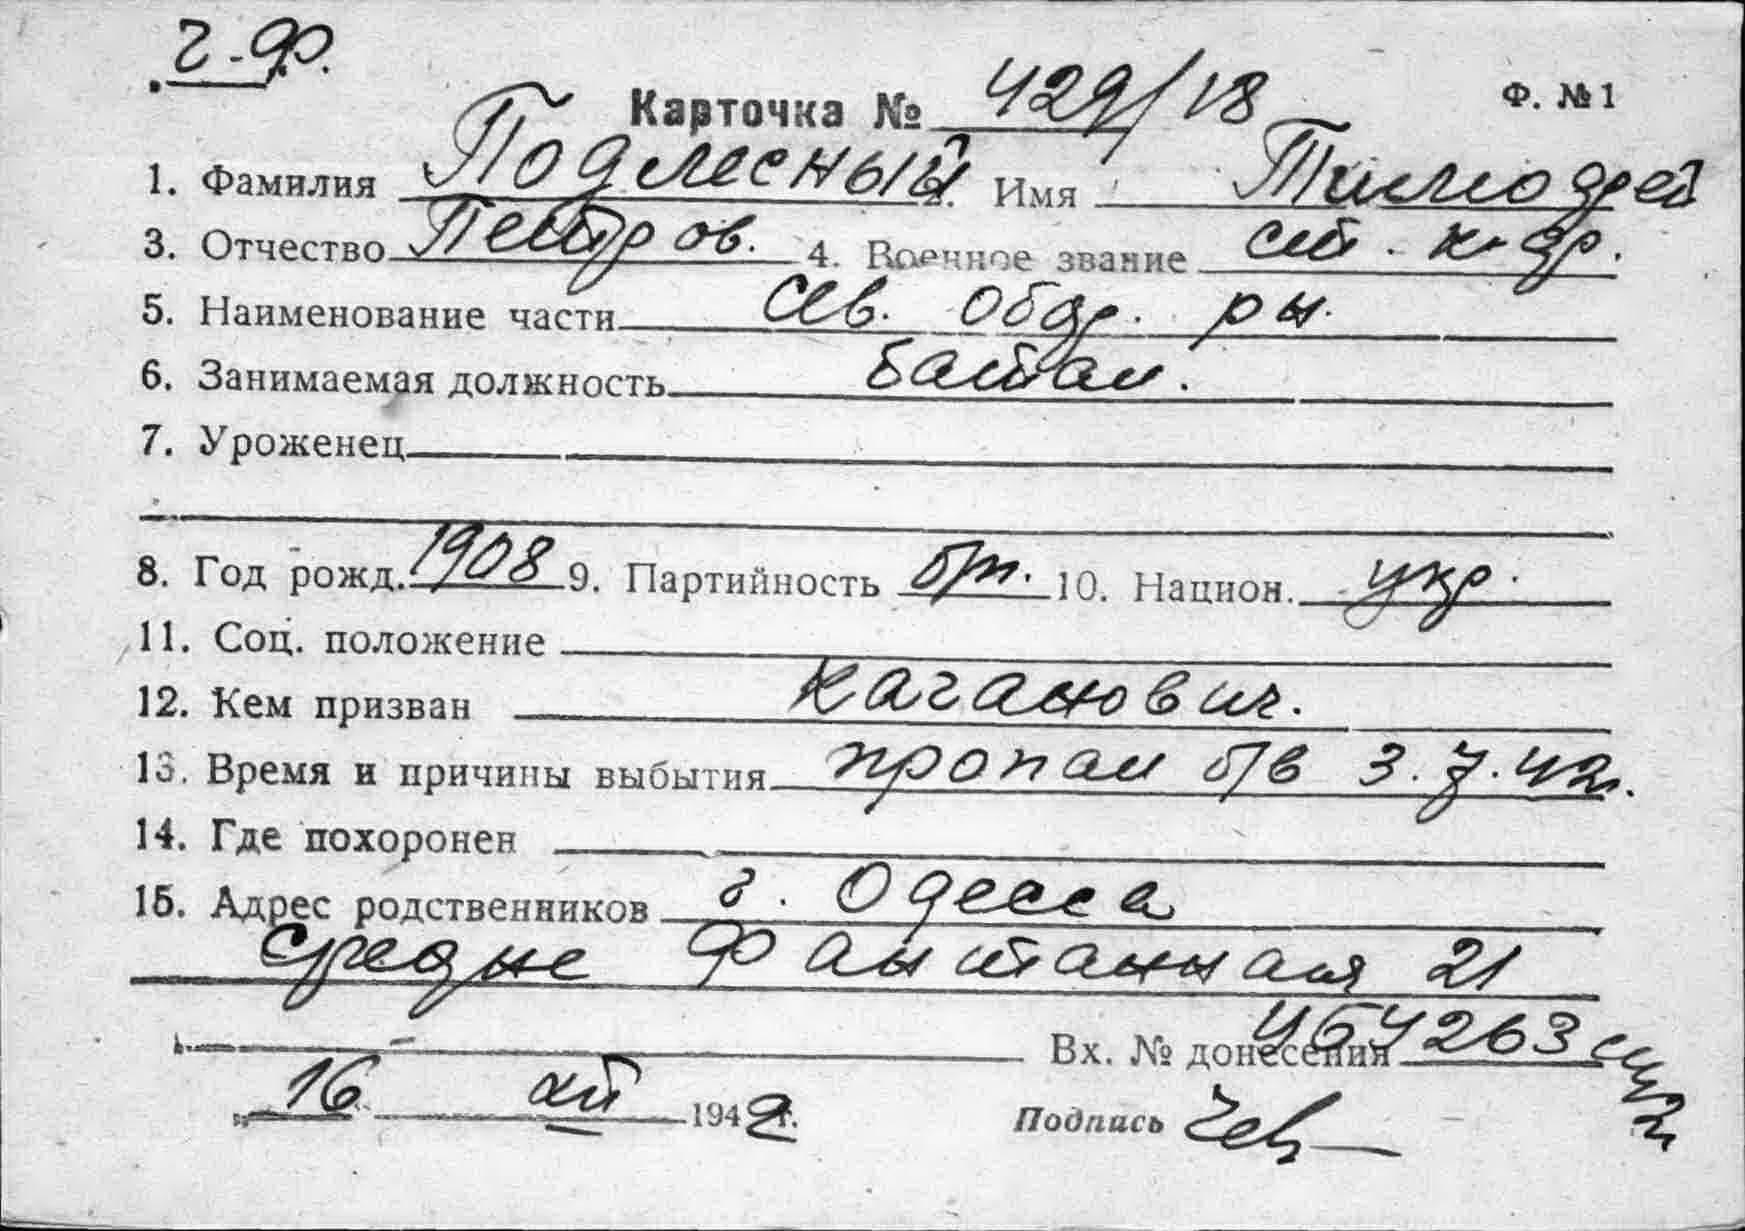 г-Ф.
Карточка № 429/18 Ф. №1
1. Фамилия Подлесный 2. Имя Тимофей
3. Отчество Петров. 4. Военное звание ст. к-др.
5. Наименование части Сев.
6. Занимаемая должность батал.
7. Уроженец
8. Год рожд. 1908 9. Партийность б/п. 10. Национ. укр.
11. Соц. положение
12. Кем призван Каганович.
13. Время и причины выбытия пропал б/в 3.7.42г.
14. Где похоронен
15. Адрес родственников г. Одесса
средне Фантанная 21
Вх. № донесения 263
„16 XII 1942г.
Подпись